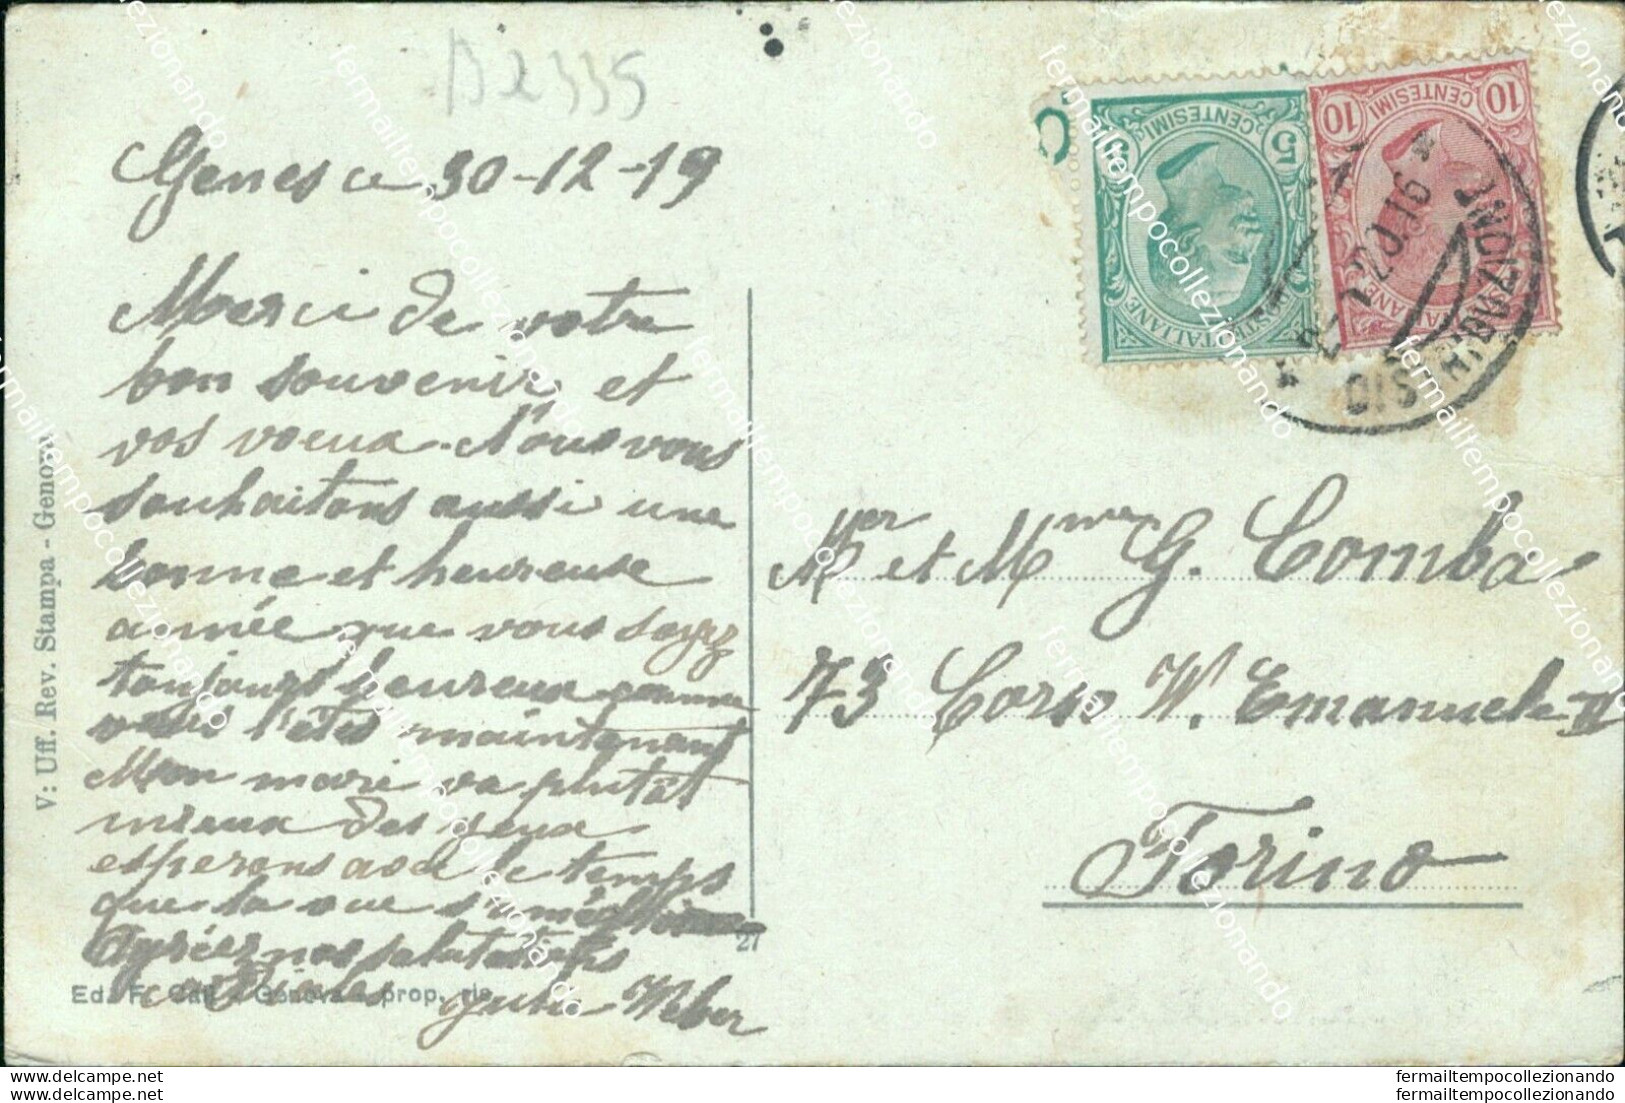 B2335
Genes ce 30-12-19
Merci de votre
bon souvenir et
vos voeux. Nous vous
souhaitons aussi une
bonne et heureuse
année que vous soyez
toujours heureux comme
vous l'êtes maintenant
Mon mari va plutôt
mieux des yeux
esperons avec le temps
que la vue s'améliore
Agréez nos salutations
cordiales Julie Weber
V: Uff. Rev. Stampa - Genova
27
Ed. F. Cali - Genova - prop. ris.
5 5
CENTESIMI
POSTE ITALIANE
10 10
CENTESIMI
POSTE ITALIANE
DISTRIBUZIONE
Mer et Mme G. Comba
73 Corso W. Emanuele II
Torino
fermailtempocollezionando
www.delcampe.net
fermailtempocollezionando
www.delcampe.net
fermailtempocollezionando